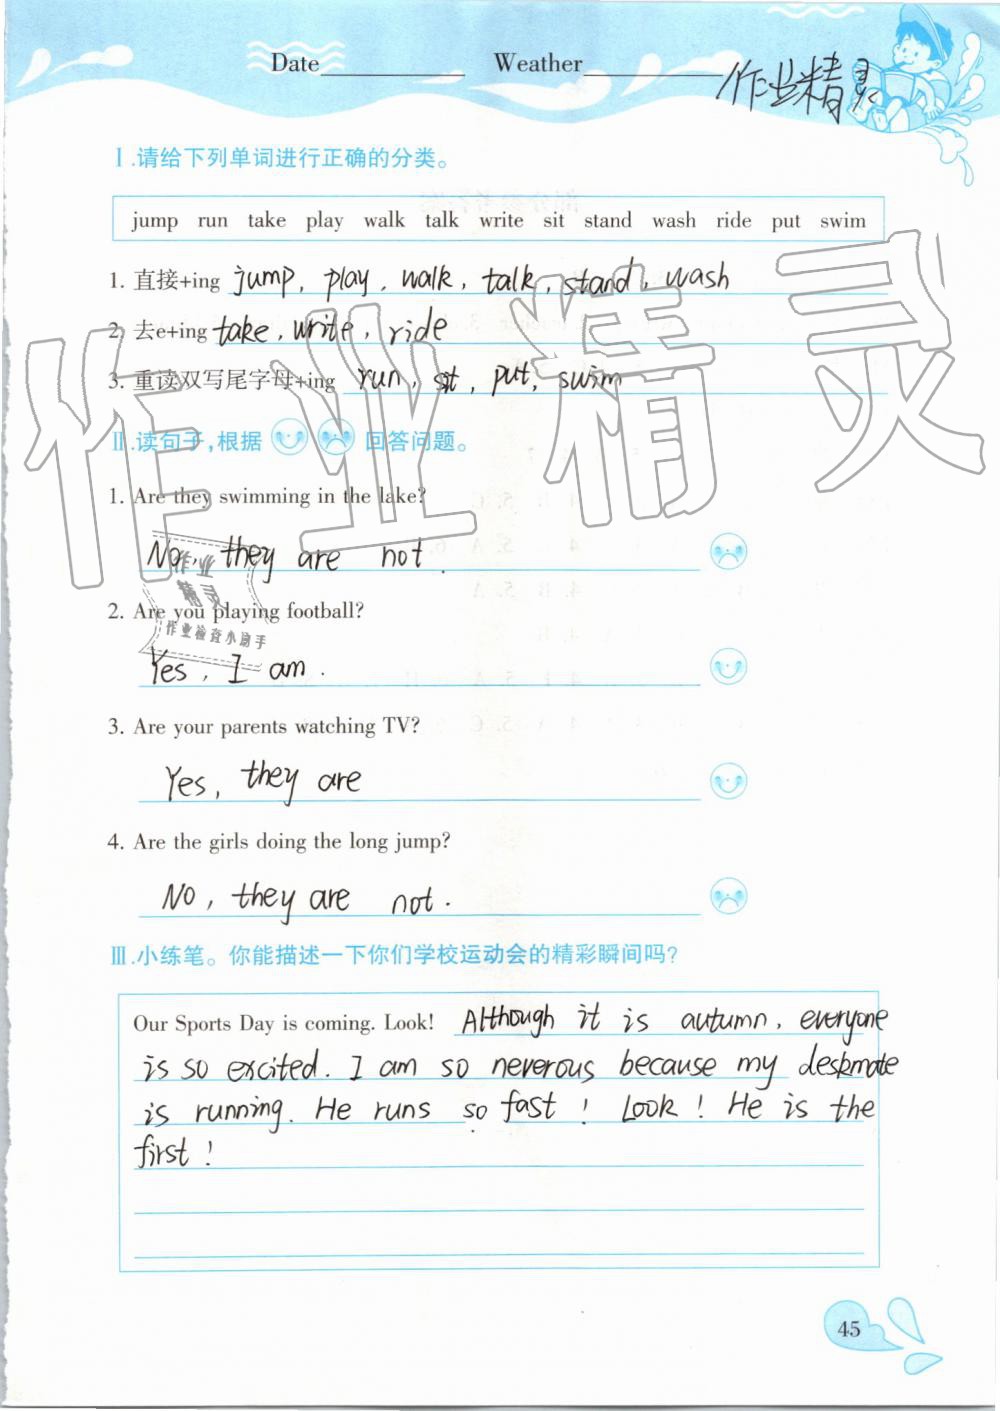 Date Weather
作业精灵
Ⅰ.请给下列单词进行正确的分类。
jump run take play walk talk write sit stand wash ride put swim
1. 直接+ing jump, play, walk, talk, stand, wash
2. 去e+ing take, write, ride
3. 重读双写尾字母+ing run, sit, put, swim
作业精灵
Ⅱ.读句子,根据 回答问题。
1. Are they swimming in the lake?
No, they are not.
作业
精灵
作业检查小助手
2. Are you playing football?
Yes, I am.
3. Are your parents watching TV?
Yes, they are
4. Are the girls doing the long jump?
No, they are not.
Ⅲ.小练笔。你能描述一下你们学校运动会的精彩瞬间吗?
Our Sports Day is coming. Look! Although it is autumn, everyone
is so excited. I am so neverous because my deskmate
is running. He runs so fast! Look! He is the
first!
45